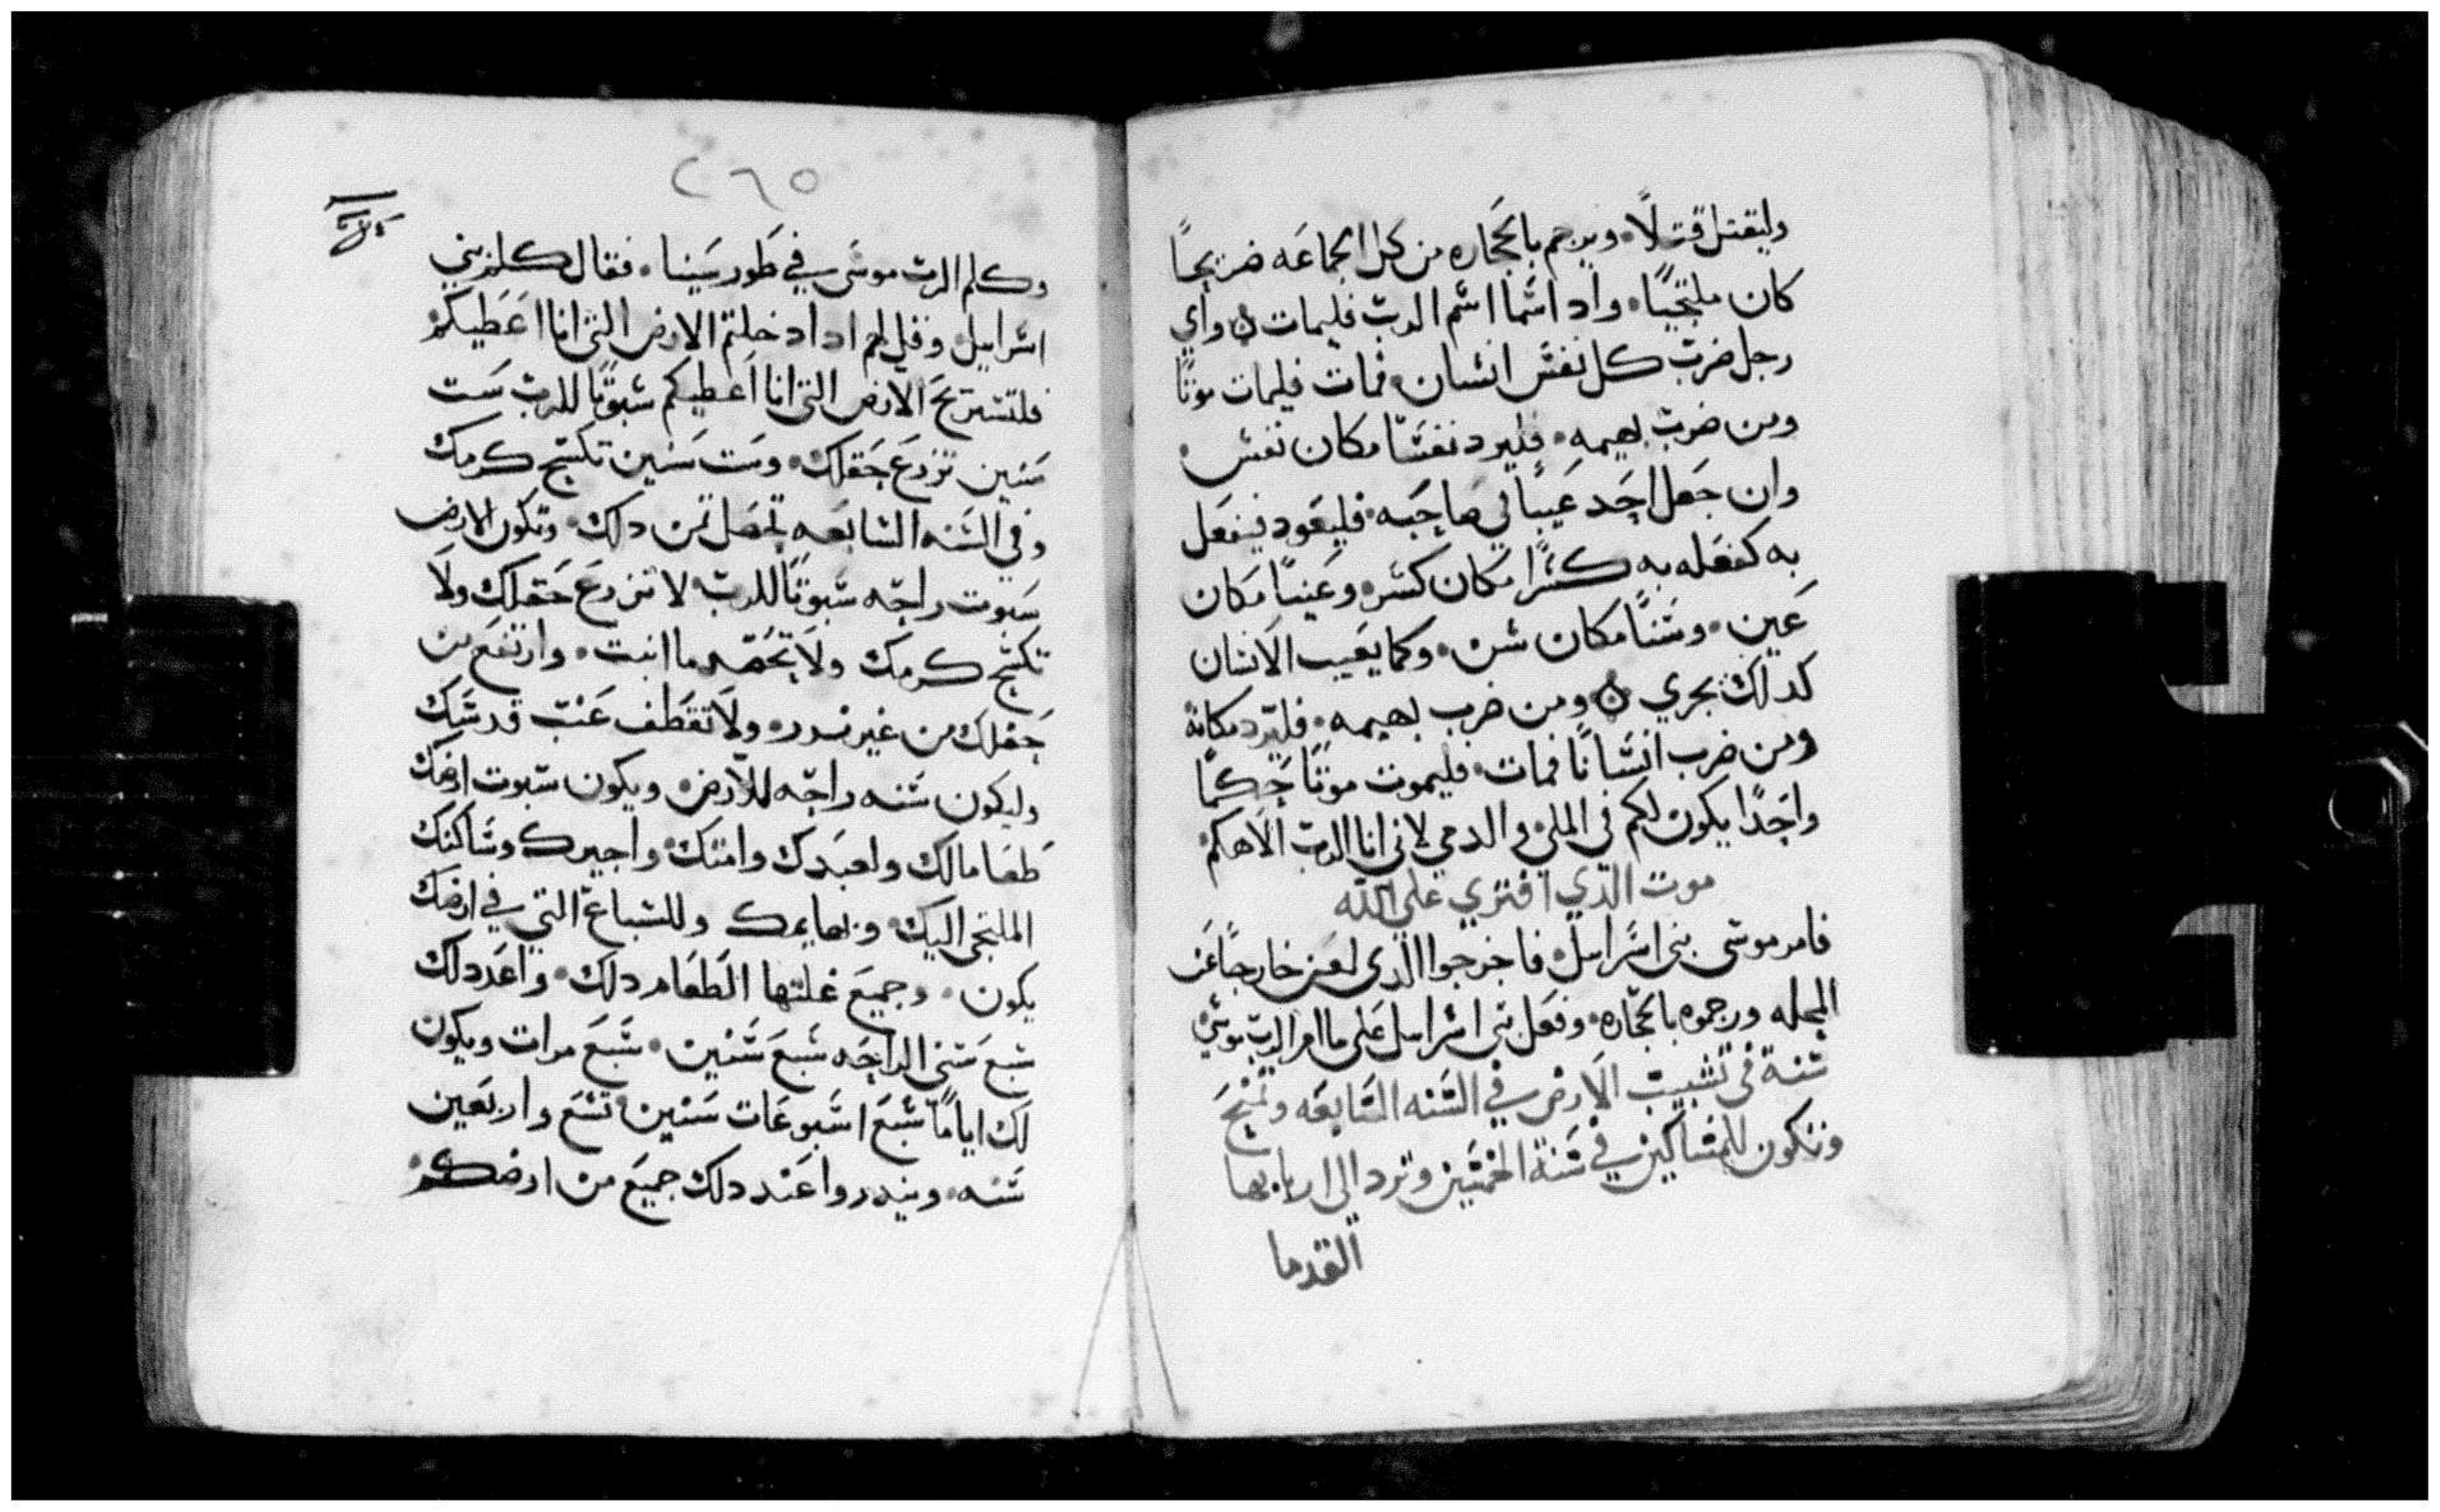 وليقتل قتلًا۰ ويرجم بالحجاره من كل الجماعه ضريحًا
كان ملتجيًا۰ واداسما اسم الرب فليمات ں واي
رجل ضرب كل نفس انسان۰ فمات فليمات موتًا
ومن ضرب بهيمه۰ فليرد نفسًا مكان نفس۰
وان جعل احد عيبًا في صاحبه۰ فليعود فيفعل
به كفعله به كسرًا مكان كسر۰ وعينًا مكان
عين۰ وسنًا مكان سن۰ وكما يعيب الانسان
كدلك يجري ں ومن ضرب بهيمه۰ فليرد مكانه
ومن ضرب انسانًا فمات۰ فليموت موتًا حكمًا
واحدًا يكون لكم في الملي والدمي لاني انا الرب الاهكم۰
موت الدي افتري علي الله
فامر موسى بني اسراييل۰ فاخرجوا الدي لعن خارجًا عن
المحله ورجموه بالحجاره۰ وفعل بني اسراييل على ما امر الرب موسى
سنة في تسبيت الارض في السنه السابعه وتمنح
وتكون للمساكين في سنة الخمسين وترد الى اربابها
القدما
٢٦٥
وكلم الرب موسى في طور سينا۰ فقال كلم بني
اسراييل۰ وقل لهم اداد خلتم الارض التي انا اعطيكم۰
فلتستريح الارض التي انا اعطيكم سبوتًا للرب ست
سنين تزرع حقلك۰ وست سنين تكسح كرمك
وفي السنه السابعه تحصل من دلك۰ وتكون الارض
سبوت راحه سبوتًا للرب لا تزرع حقلك ولا
تكسح كرمك ولا تحصد ما انبت۰ وارتفع من
حقلك من غير ندر۰ ولا تقطف عنب قدسك
وليكون سنه راحه للارض۰ ويكون سبوت ارضك
طعامًا لك ولعبدك وامتك۰ واجيرك وساكنك
الملتجي اليك۰ وبهايمك وللسباع التي في ارضك
يكون۰ وجميع غلتها الطعام دلك۰ واعدد لك
سبع سني الراحه سبع سنين۰ سبع مرات ويكون
لك ايامًا سبع اسبوعات سنين۰ تسع واربعين
سنه۰ ويندروا عند دلك جميع من ارضكم۰